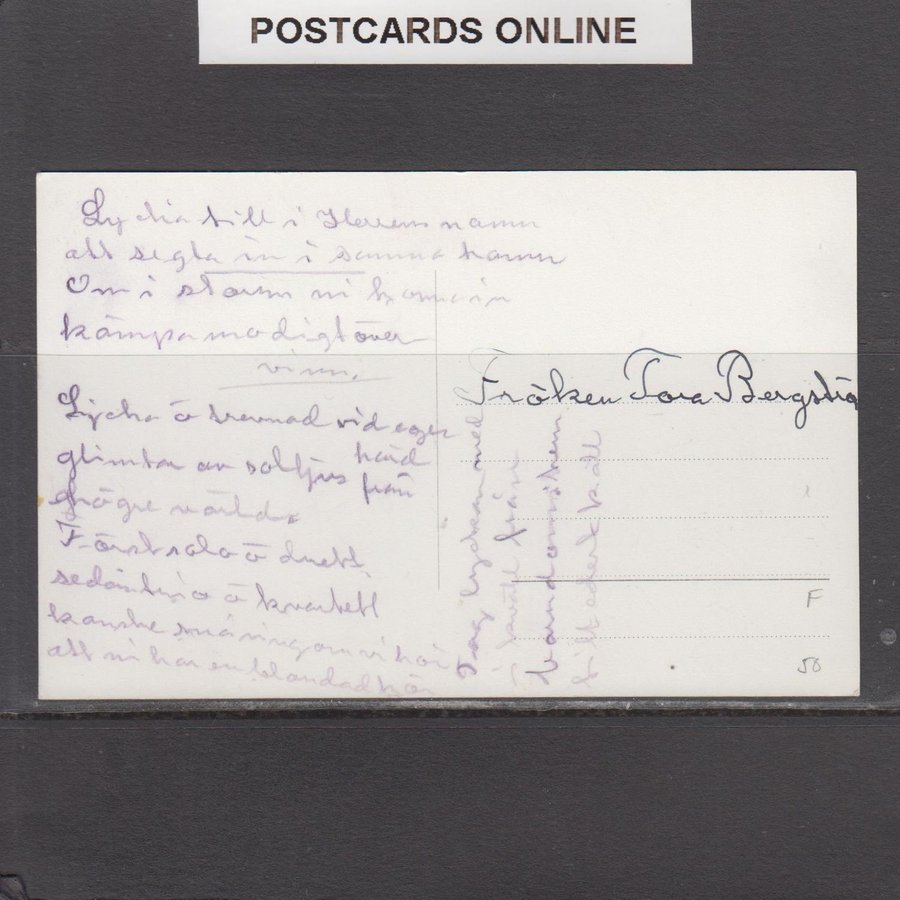 POSTCARDS ONLINE
Lycka till i Herrens namn
att segla in i samma hamn
Om i storm ni komma in
kämpa modigt över
vinn.
Lycka ö trevnad vid eger härd
glimtar av solljus från
högre värld.
Först solo ö duett
sedan trio ö kvartett
kanske småningom vi hör
att ni har en blandad kör
Fröken Tora Bergströ
Tag lyckan med
vardom i hem
F
50